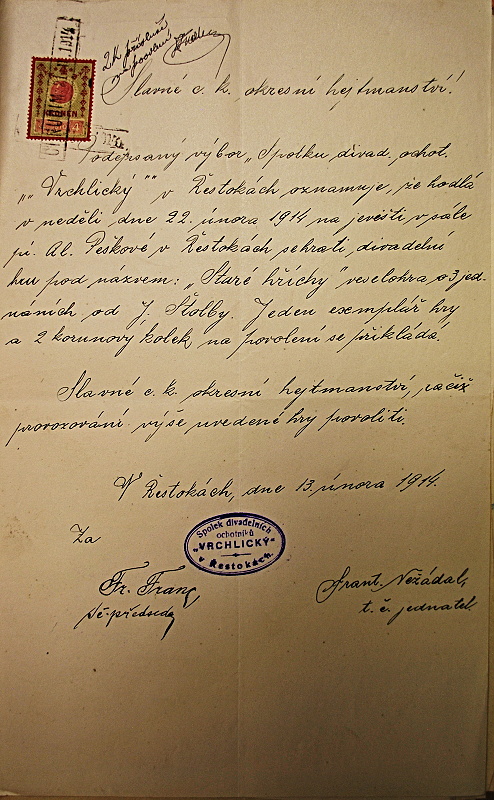 2 K příslušní
na povolení
Slavné c. k. okresní hejtmanství!
KRONEN
Podepsaný výbor „Spolku divad. ochot.
„„Vrchlický"" v Řestokách oznamuje, že hodlá
v neděli dne 22. února 1914 na jevišti v sále
pí. Al. Peškové v Řestokách sehráti divadelní
hru pod názvem: „Staré hříchy" veselohra o 3 jed-
náních od J. Štolby. Jeden exemplář hry
a 2 korunový kolek na povolení se přikládá.
Slavné c. k. okresní hejtmanství, račiž
provozování výše uvedené hry povoliti.
V Řestokách, dne 13. února 1914.
Za
Spolek divadelních
ochotníků
„VRCHLICKÝ"
v Řestokách.
Fr. Franc
t. č. předseda
Frant. Nežádal,
t. č. jednatel